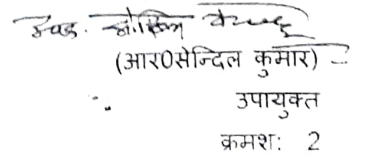 (आर0सेन्दिल कुमार)
उपायुक्त
क्रमशः 2